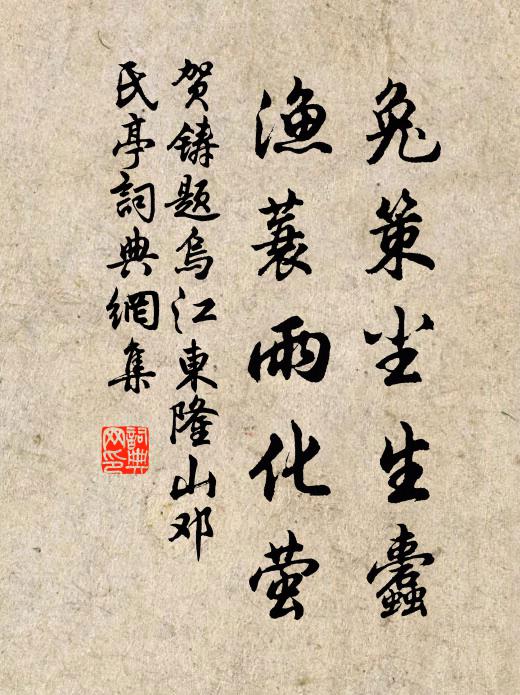 兔策尘生蠹
渔蓑雨化萤
贺铸题乌江東隆山邓
民亭詞典網集
詞典网印